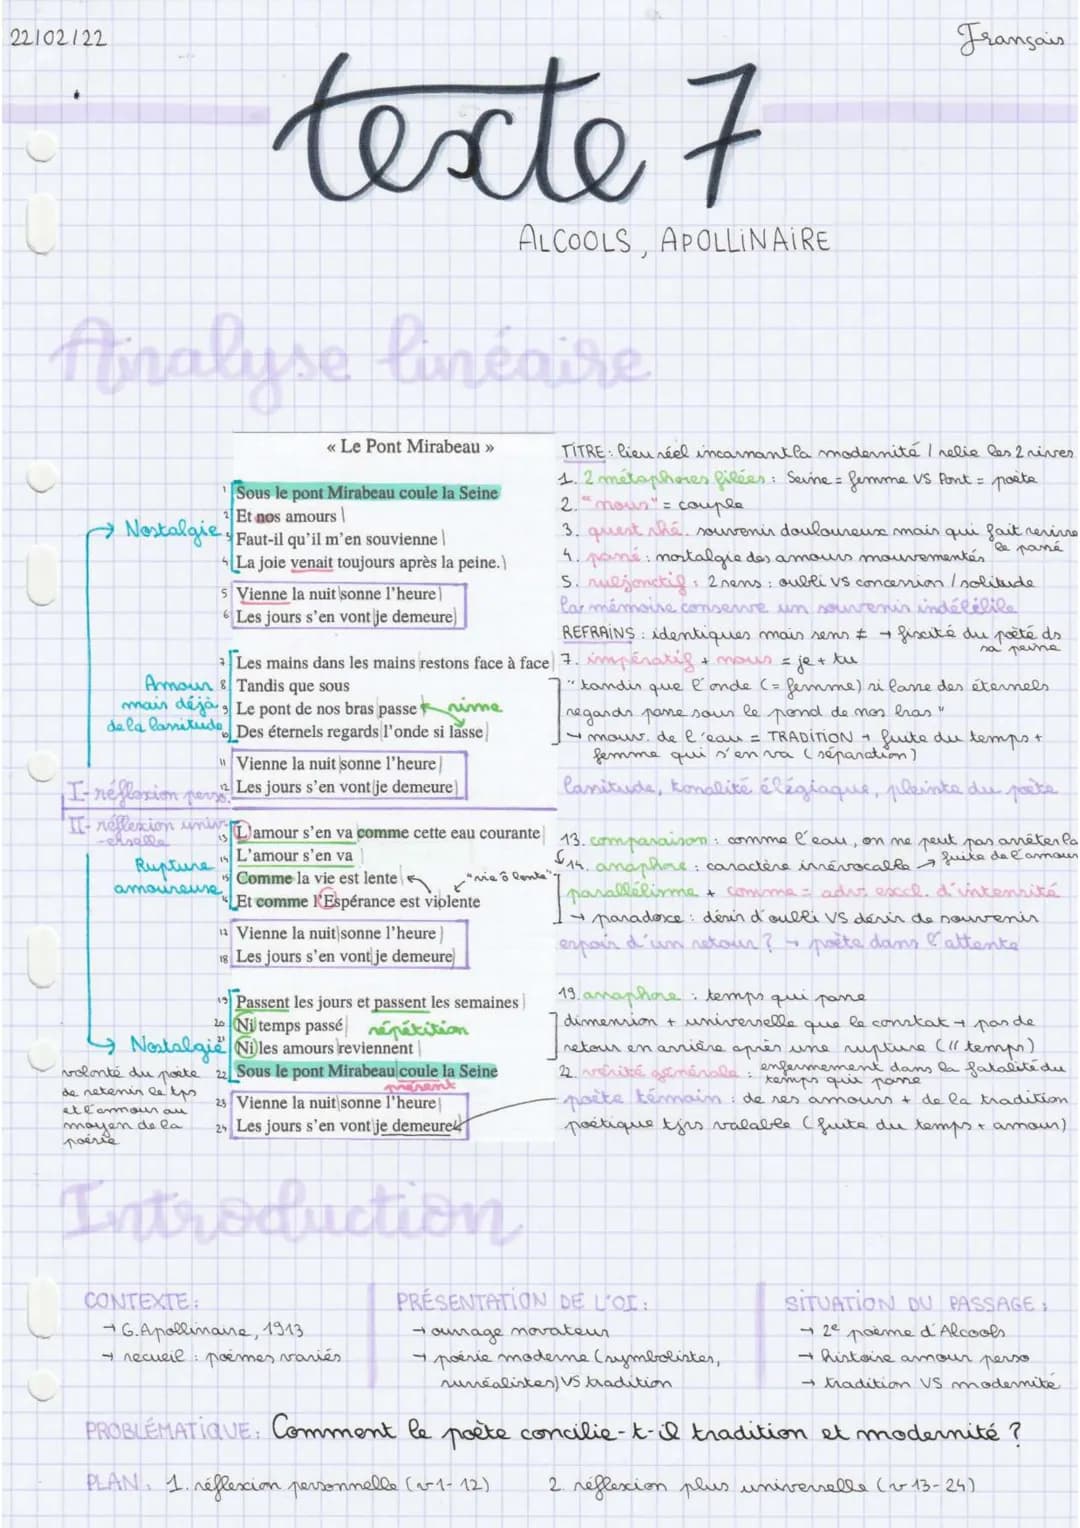 22/02/22
Français
texte 7
ALCOOLS, APOLLINAIRE
Analyse linéaire
« Le Pont Mirabeau »
1 Sous le pont Mirabeau coule la Seine
2 Et nos amours
3 Faut-il qu'il m'en souvienne
4 La joie venait toujours après la peine.
Nostalgie
5 Vienne la nuit sonne l'heure
6 Les jours s'en vont je demeure
7 Les mains dans les mains restons face à face
8 Tandis que sous
9 Le pont de nos bras passe
rime
10 Des éternels regards l'onde si lasse
Amour
mais déjà
de la lassitude
11 Vienne la nuit sonne l'heure
12 Les jours s'en vont je demeure
I- réflexion perso.
II- réflexion univ-
-erselle
13 L'amour s'en va comme cette eau courante
14 L'amour s'en va
15 Comme la vie est lente
"vie ô lente"
16 Et comme l'Espérance est violente
Rupture
amoureuse
17 Vienne la nuit sonne l'heure
18 Les jours s'en vont je demeure
19 Passent les jours et passent les semaines
20 Ni temps passé
répétition
21 Ni les amours reviennent
22 Sous le pont Mirabeau coule la Seine
présent
Nostalgie
23 Vienne la nuit sonne l'heure
24 Les jours s'en vont je demeure
volonté du poète
de retenir le tps
et l'amour au
moyen de la
poésie
TITRE : lieu réel incarnant la modernité / relie les 2 rives
1. 2 métaphores filées : Seine = femme VS Pont = poète
2. "nous" = couple
3. quest rhé. souvenir douloureux mais qui fait revivre
le passé
4. passé : nostalgie des amours mouvementés
5. subjonctif : 2 sens : oubli VS concession / solitude
la mémoire conserve un souvenir indélébile
REFRAINS : identiques mais sens ≠ → fixité du poète ds
sa peine
7. impératif + nous = je + tu
"tandis que l'onde (= femme) si lasse des éternels
regards passe sous le pond de nos bras"
→ mouv. de l'eau = TRADITION → fuite du temps +
femme qui s'en va (séparation)
lassitude, tonalité élégiaque, plainte du poète
13. comparaison : comme l'eau, on ne peut pas arrêter la
fuite de l'amour
14. anaphore : caractère irrévocable →
parallélisme + comme = adv. excl. d'intensité
→ paradoxe : désir d'oubli VS désir de souvenir
espoir d'un retour ? → poète dans l'attente
19. anaphore : temps qui passe
dimension + universelle que le constat → pas de
retour en arrière après une rupture (// temps)
22. vérité générale : enfermement dans la fatalité du
temps qui passe
poète témoin : de ses amours + de la tradition
poétique tjrs valable (fuite du temps + amour)
Introduction
CONTEXTE :
→ G. Apollinaire, 1913
→ recueil : poèmes variés
PRÉSENTATION DE L'OI :
→ ouvrage novateur
→ poésie moderne (symbolistes,
surréalistes) VS tradition
SITUATION DU PASSAGE :
→ 2e poème d'Alcools
→ histoire amour perso
→ tradition VS modernité
PROBLÉMATIQUE : Comment le poète concilie-t-il tradition et modernité ?
PLAN : 1. réflexion personnelle (v 1-12) 2. réflexion plus universelle (v 13-24)